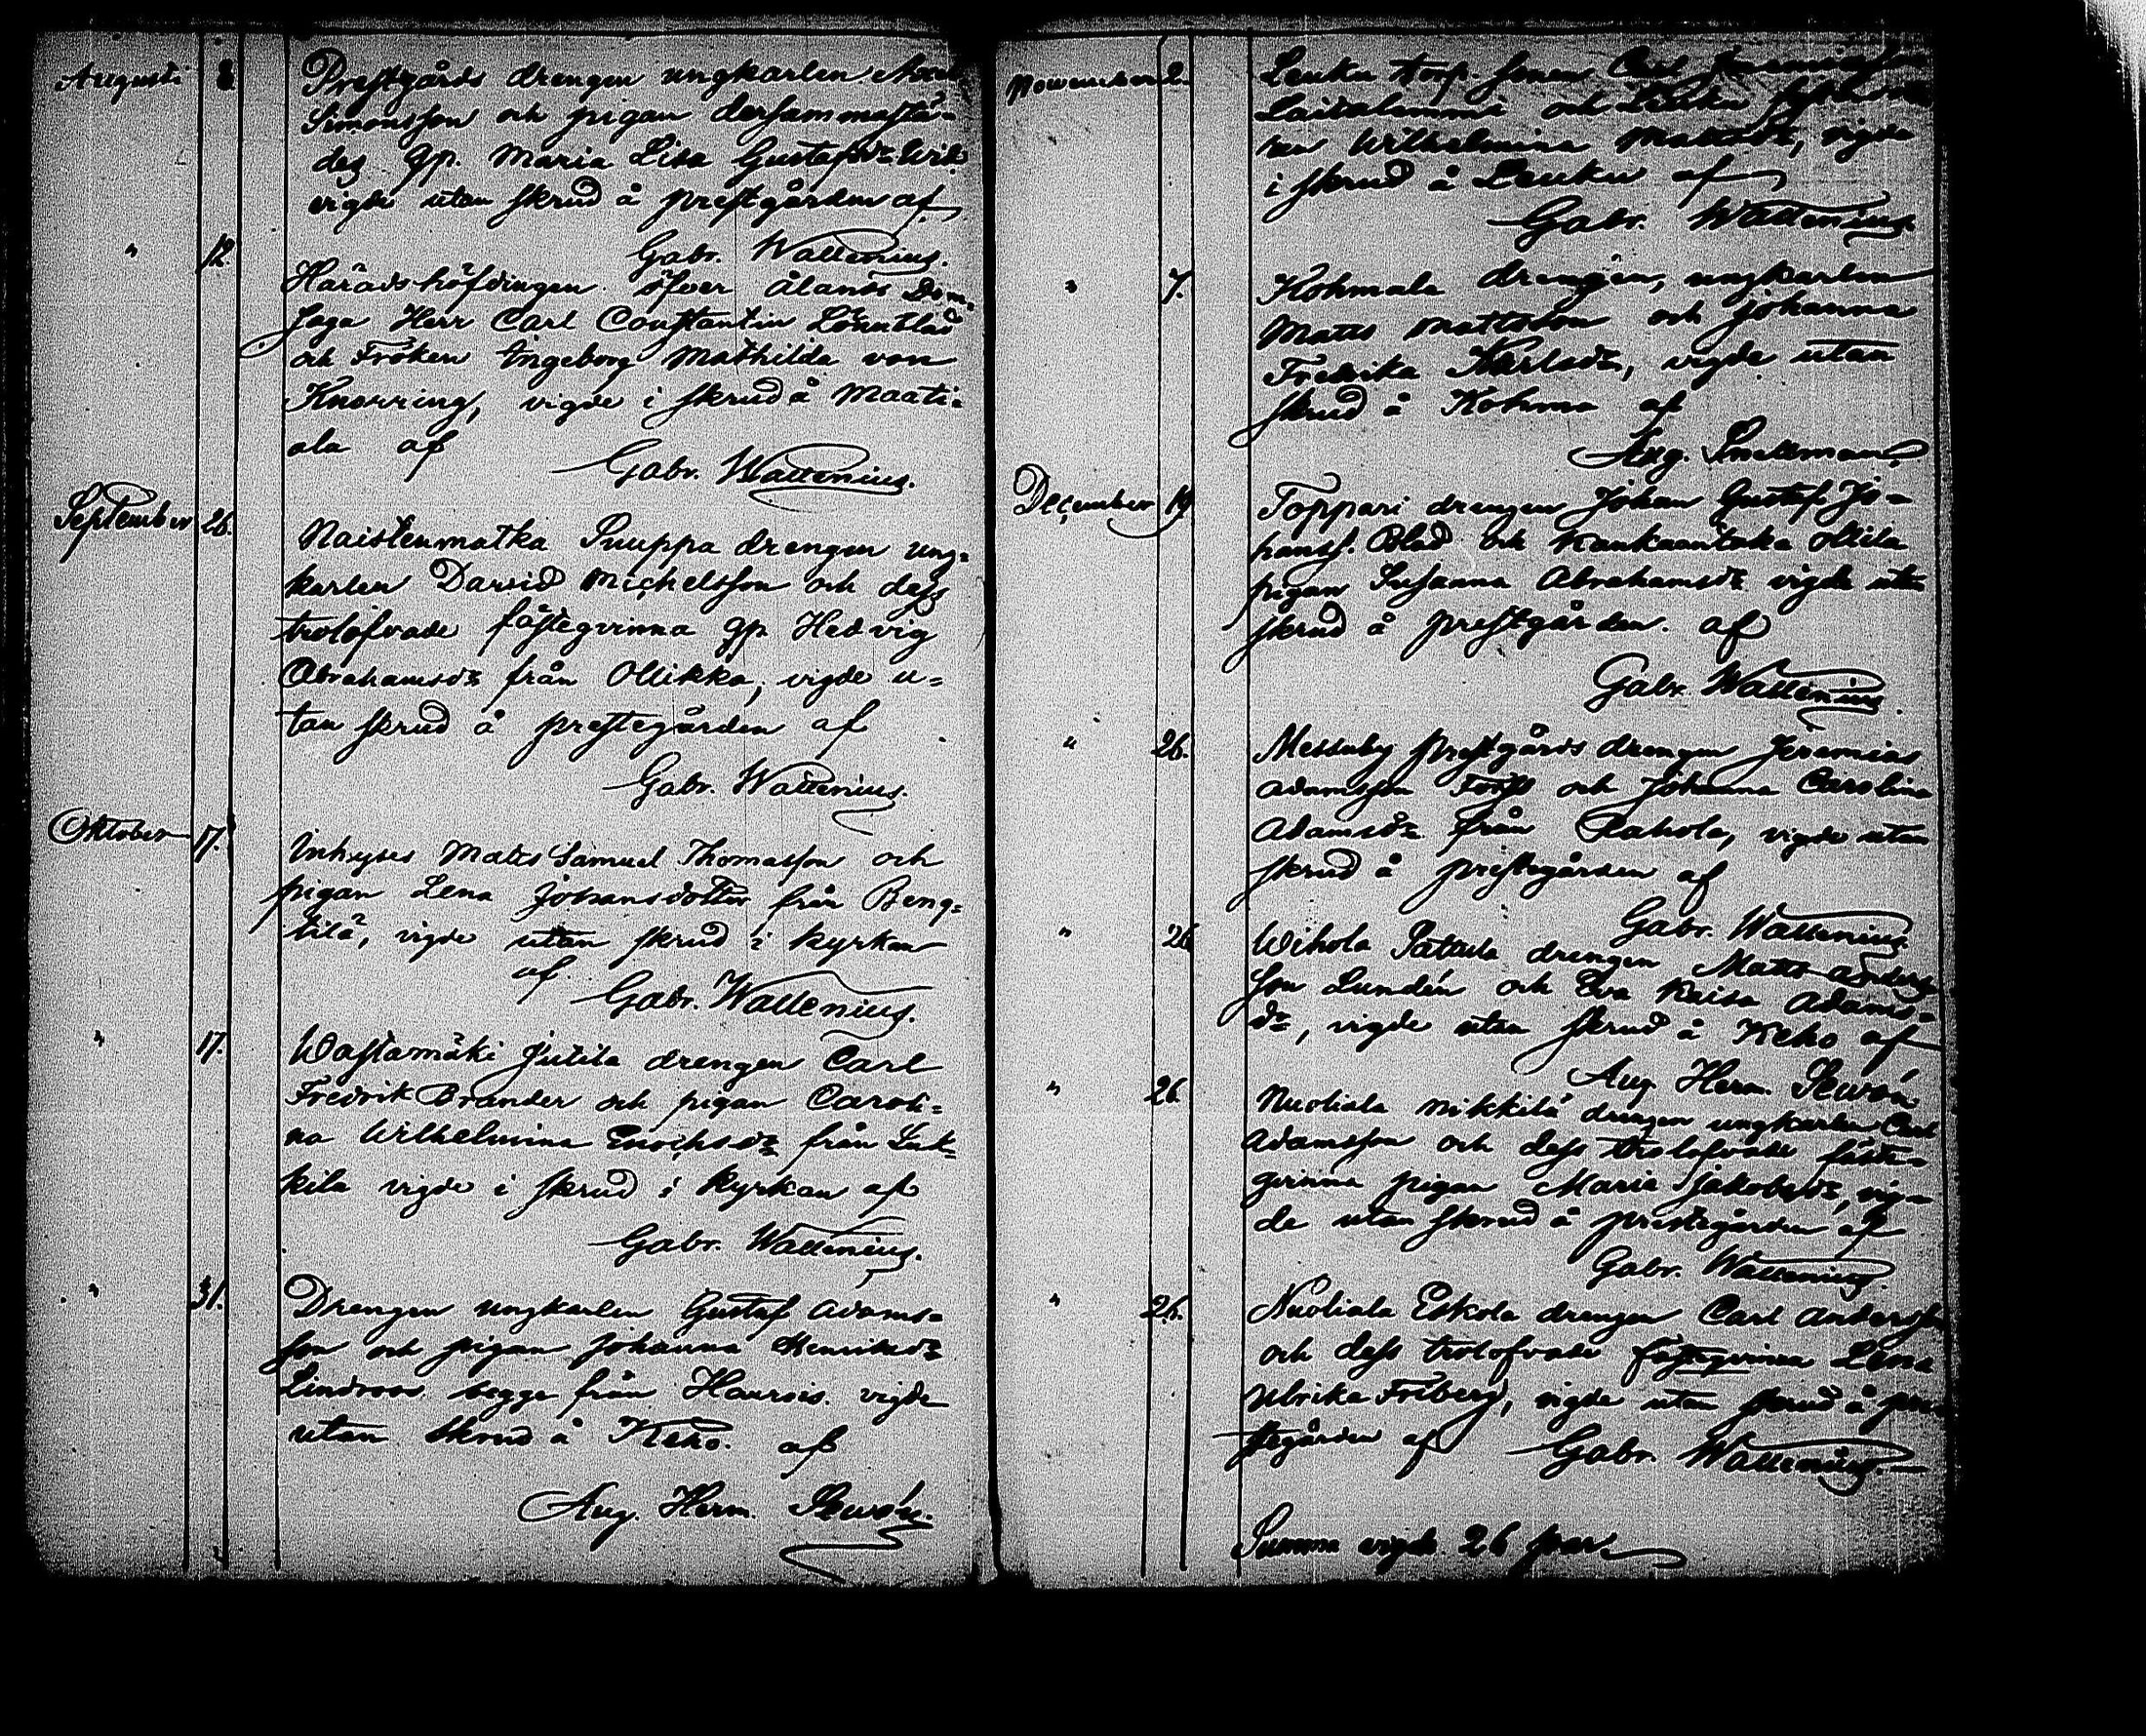 Augusti 8. Prestgårds drengen ungkarlen
Simonsson och pigan dersammastä-
des gp. Maria Lisa Gustafsdr
vigde utan skrud å prestgården af
Gabr. Wallenius.
" 12. Häradshöfdingen öfver Ålands Dom-
saga Herr Carl Constantin Lönnblad
och Fröken Ingeborg Mathilda von
Knorring, vigde i skrud å Maati-
ala af
Gabr. Wallenius.
September 26. Naistenmatka Snuppa drengen ung-
karlen David Michelsson och dess
trolofvade fästeqvinna gp. Hedvig
Abrahamsdr från Ollikka, vigde u-
tan skrud å prestegården af
Gabr. Wallenius.
Oktober 17. Inhyses Matts Samuel Thomasson och
pigan Lena Johansdotter från Beng-
tilä, vigde utan skrud i kyrkan
af
Gabr. Wallenius.
" 17. Wastamäki Jutila drengen Carl
Fredrik Brander och pigan Caroli-
na Wilhelmina Enochsdr från
kila vigde i skrud i kyrkan af
Gabr. Wallenius.
" 31. Drengen ungkarlen Gustaf Adams-
son och pigan Johanna Henriksdr
Lindroos begge från Haurois vigde
utan skrud å Keho. af
Aug. Herm.
November 2. Leuku torp. sonen Carl
och Leuku
Wilhelmina Mattsdr, vigde
i skrud å Leuku af
Gabr. Wallenius.
" 7. Kohmala drengen, ungkarlen
Matts Mattsson och Johanna
Fredrika Karlsdr, vigde utan
skrud å Kohma af
Aug. Snellman.
December 19 Toppari drengen Johan Gustaf Jo-
hanss. Blad och Kankaantaka Ollila
pigan Susanna Abrahamsdr vigde utan
skrud å prestgården. af
Gabr. Wallenius
" 26. Messuby prestgårds drengen Jeremias
Adamsson Forss och Johanna Carolina
Adamsdr från Rahola, vigde utan
skrud å prestegården af
Gabr. Wallenius.
" 26 Wihola drengen Matts Anders-
son Lundén och Eva Kaisa Adams-
dr, vigde utan skrud å Keho af
Aug. Herm.
" 26. Nuoliala Nikkilä drengen ungkarlen Carl
Adamsson och dess trolofvade fäste-
qvinna pigan Maria Jakobsdr, vig-
de utan skrud å prestegården af
Gabr. Wallenius.
" 26. Nuoliala Eskola drengen Carl Andersson
och dess trolofvade fästeqvinna Lena
Ulrika Friberg, vigde utan skrud å pre-
stegården af Gabr. Wallenius.
Summa vigde 26 par.